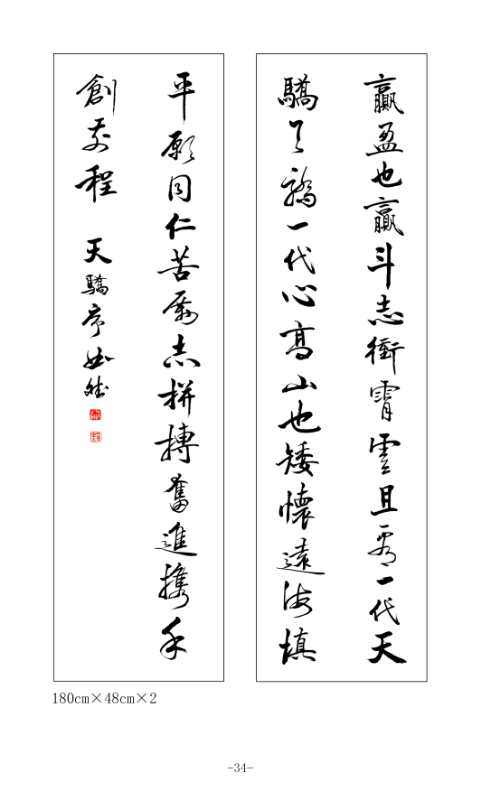 贏盈也贏斗志衝霄雲且看一代天
驕一代心高山也矮懷遠海填
平願同仁苦勵志拼搏奮進攜手
創前程 天驕序
180cm×48cm×2
-34-